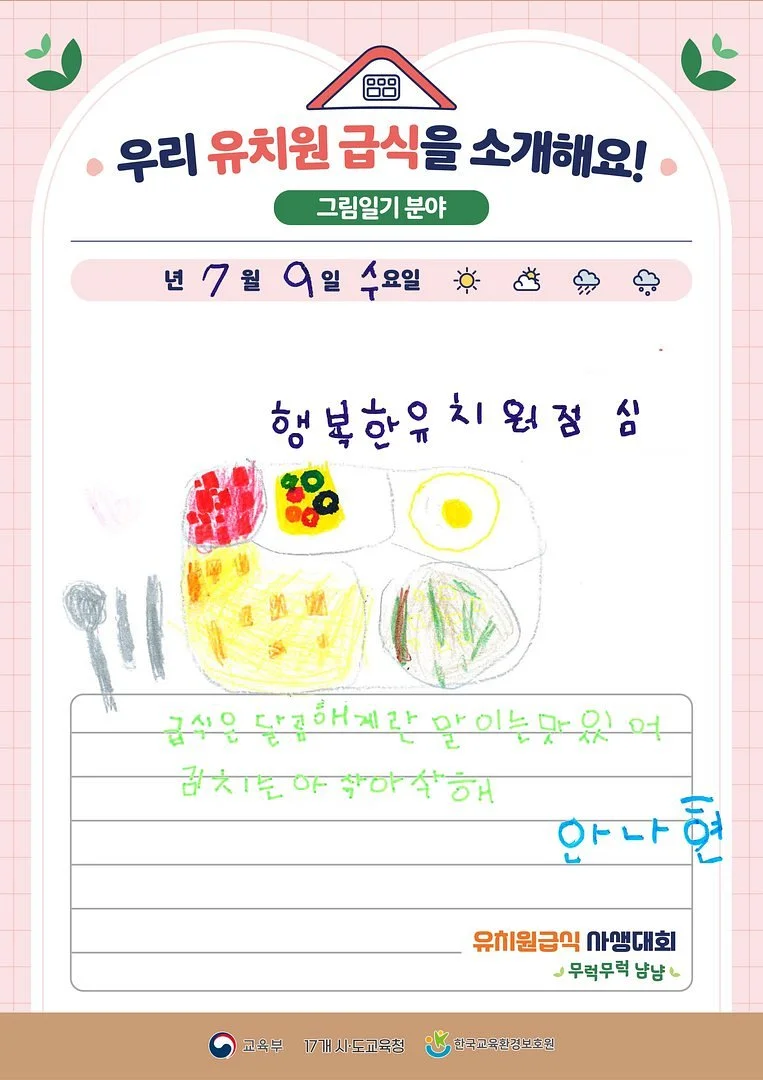 우리 유치원 급식을 소개해요!
그림일기 분야
년 7월 9일 수요일
행복한유치원점심
급식은 달콤해계란말이는맛있어
김치는아삭아삭해
안나현
유치원급식 사생대회
무럭무럭 냠냠
교육부 17개 시·도교육청 한국교육환경보호원